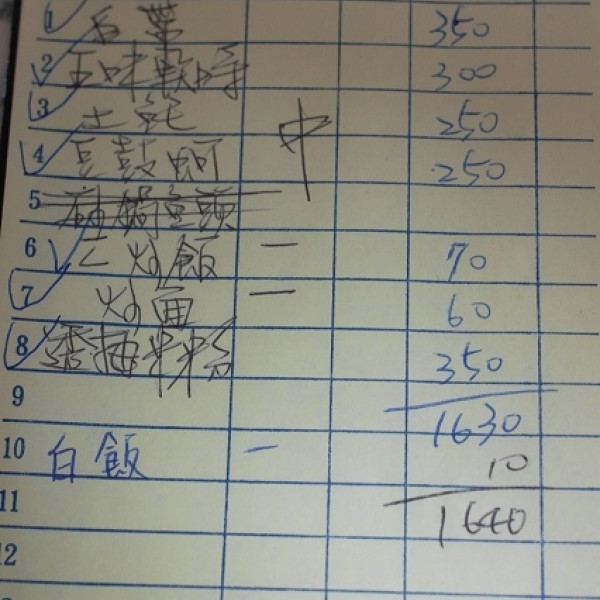 1 350
2 五味軟 300
3 土 250
中
4 豆鼓蚵 250
5 豆頭
6 炒飯 一 70
7 炒面 一 60
8 透抽米粉 350
9 1630
10 白飯 一 10
11 1640
12